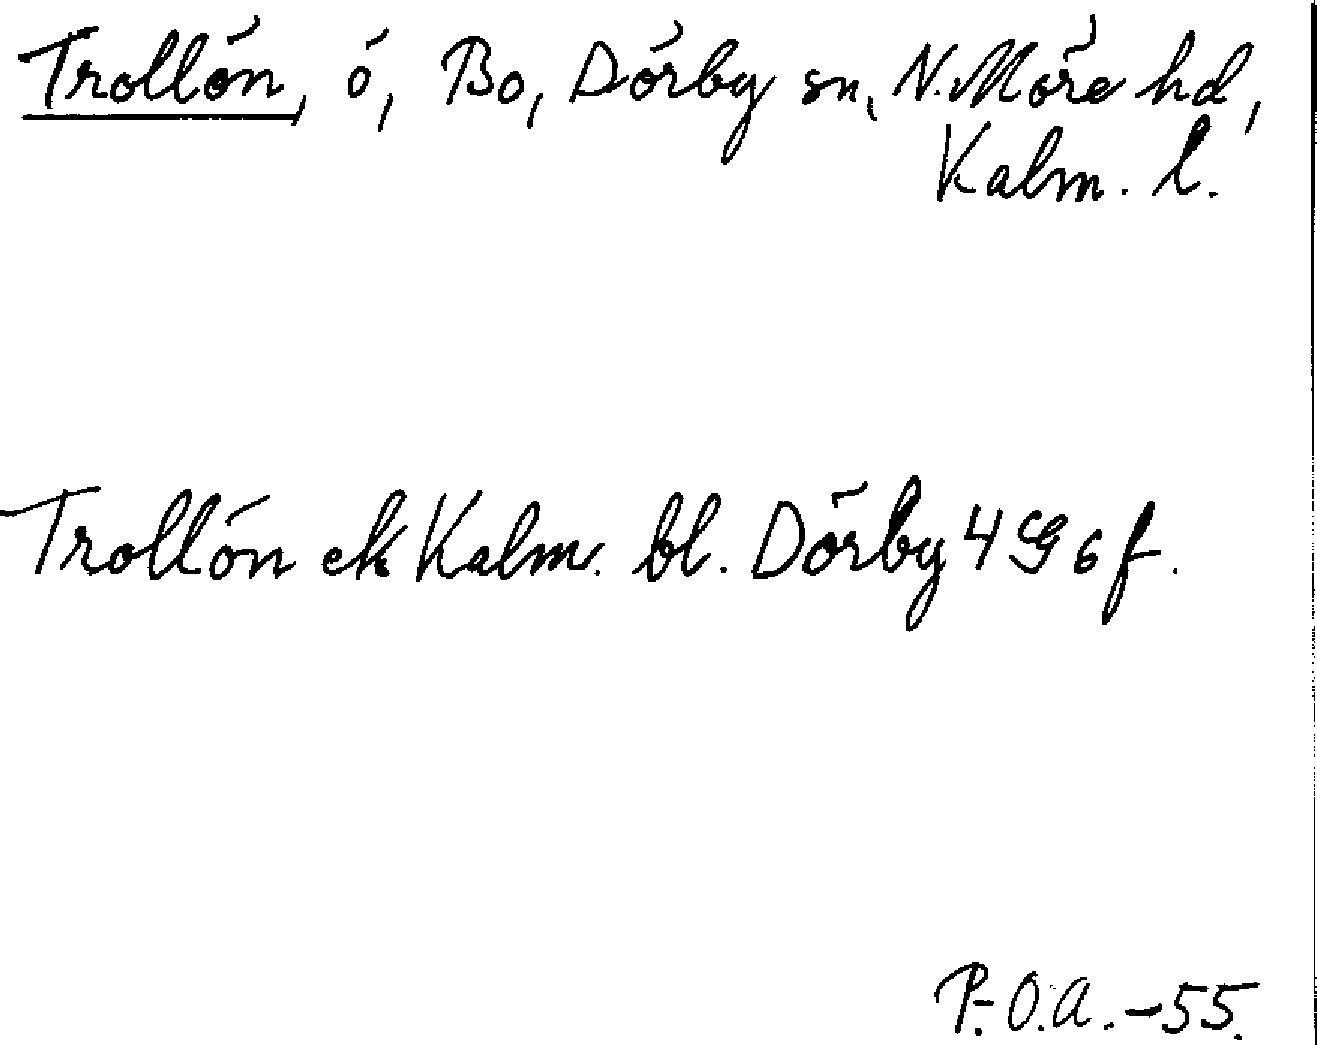 Trollön, ö, Bo, Dörby sn, N. Möre hd,
Kalm. l.
Trollön ek Kalm. bl. Dörby 4 G 6 f.
P.-O.A. -55.